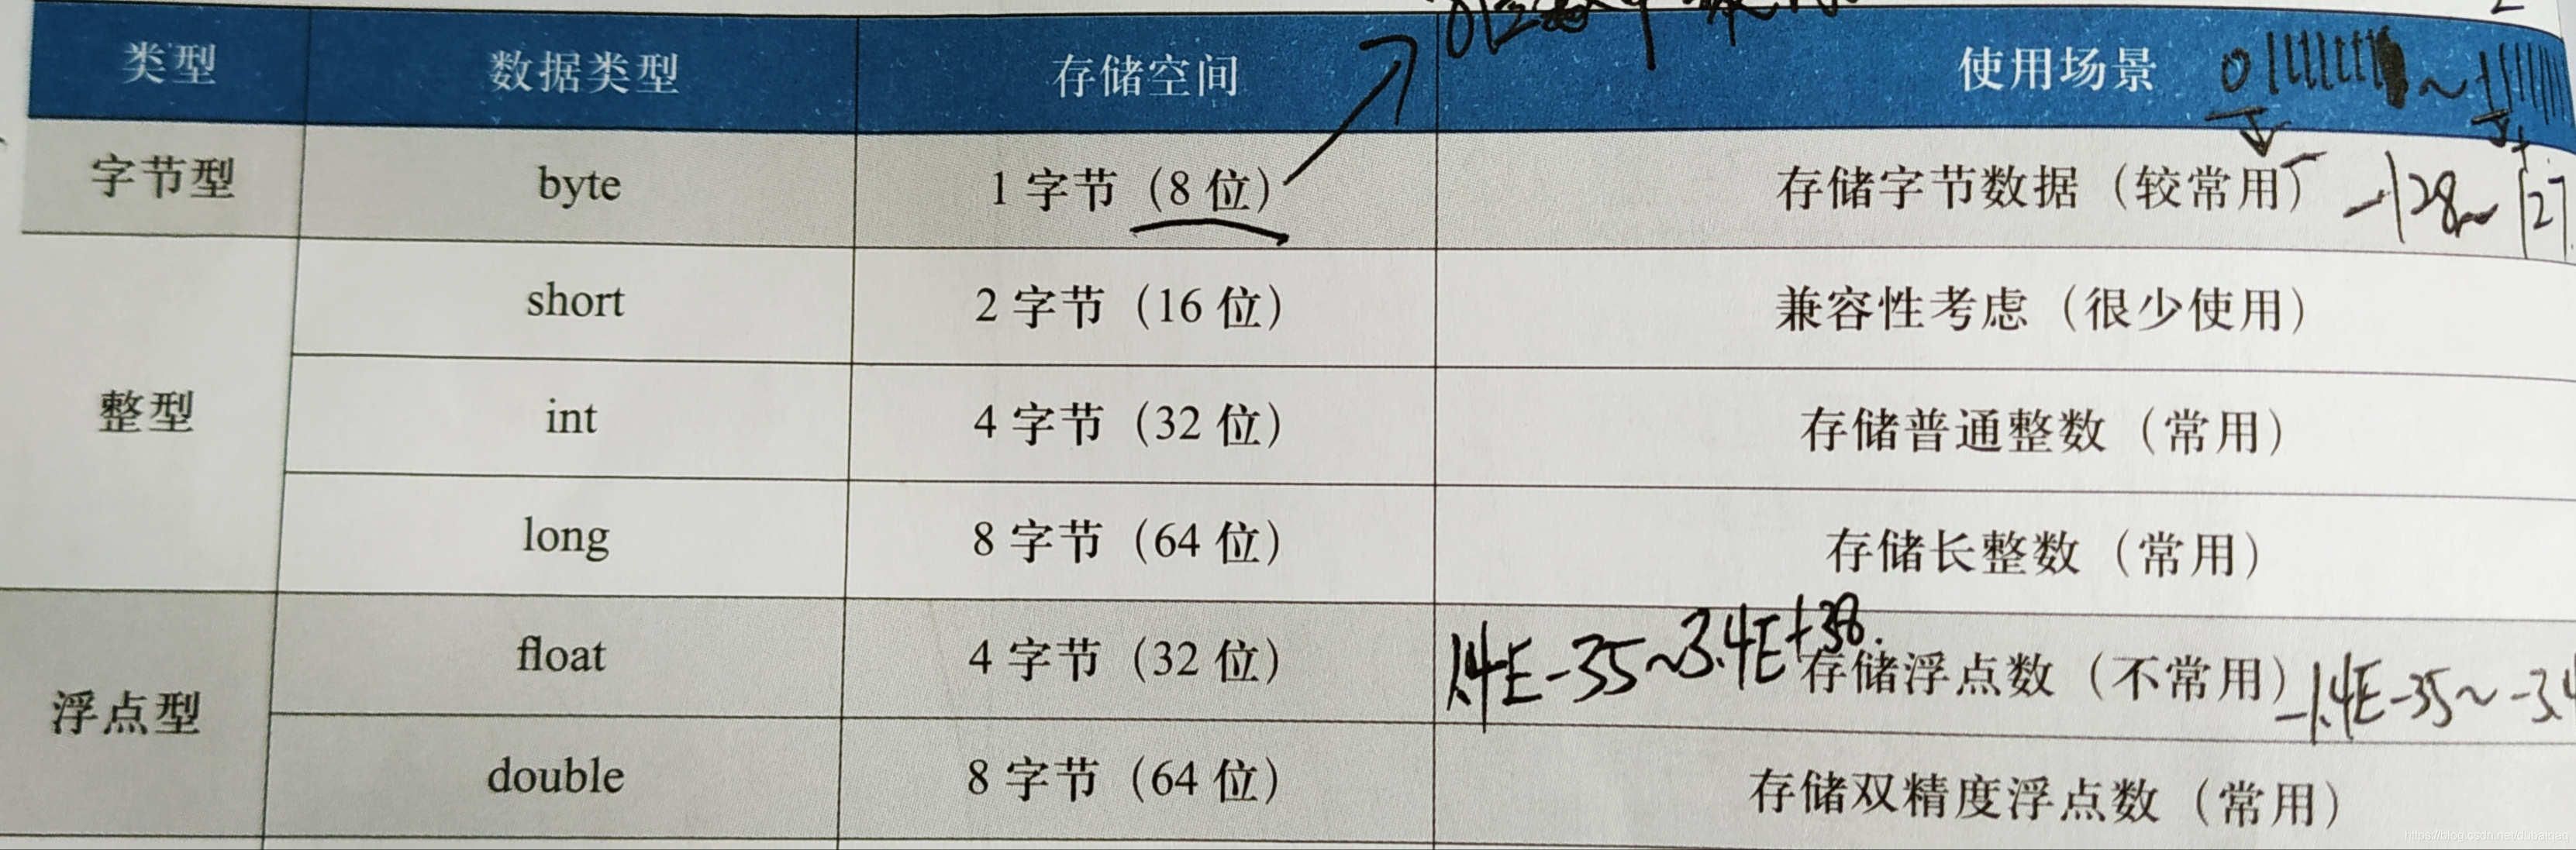 类型 数据类型 存储空间 使用场景
字节型 byte 1 字节（8 位） 存储字节数据（较常用） -128~127
short 2 字节（16 位） 兼容性考虑（很少使用）
整型 int 4 字节（32 位） 存储普通整数（常用）
long 8 字节（64 位） 存储长整数（常用）
float 4 字节（32 位） 1.4E-35~3.4E+38. 存储浮点数（不常用） -1.4E-35~-3.4
浮点型
double 8 字节（64 位） 存储双精度浮点数（常用）
https://blog.csdn.net/dubaidao